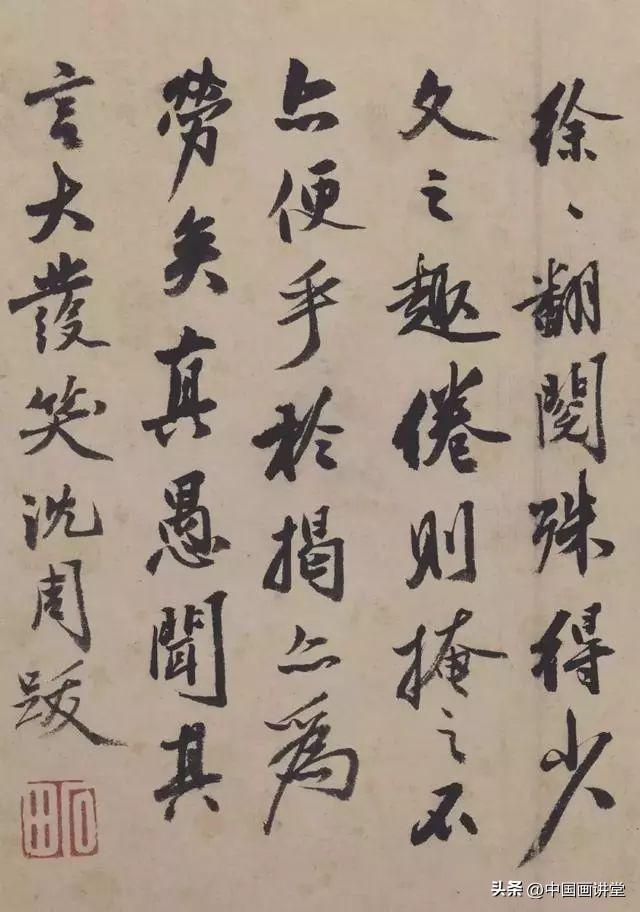 徐〻翻閱殊得少
文之趣倦則掩之不
亦便乎於揭亦為
勞矣真愚聞其
言大發笑沈周跋
石田
头条 @中国画讲堂